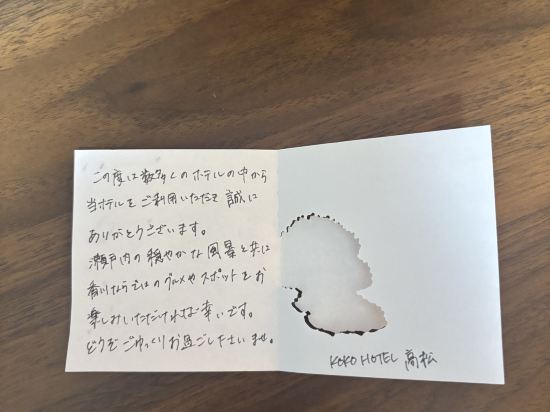 この度は数多くのホテルの中から
当ホテルをご利用いただき誠に
ありがとうございます。
瀬戸内の穏やかな風景と共に
香川ならではのグルメやスポットをお
楽しみいただければ幸いです。
どうぞごゆっくりお過ごし下さいませ。
KOKO HOTEL 高松